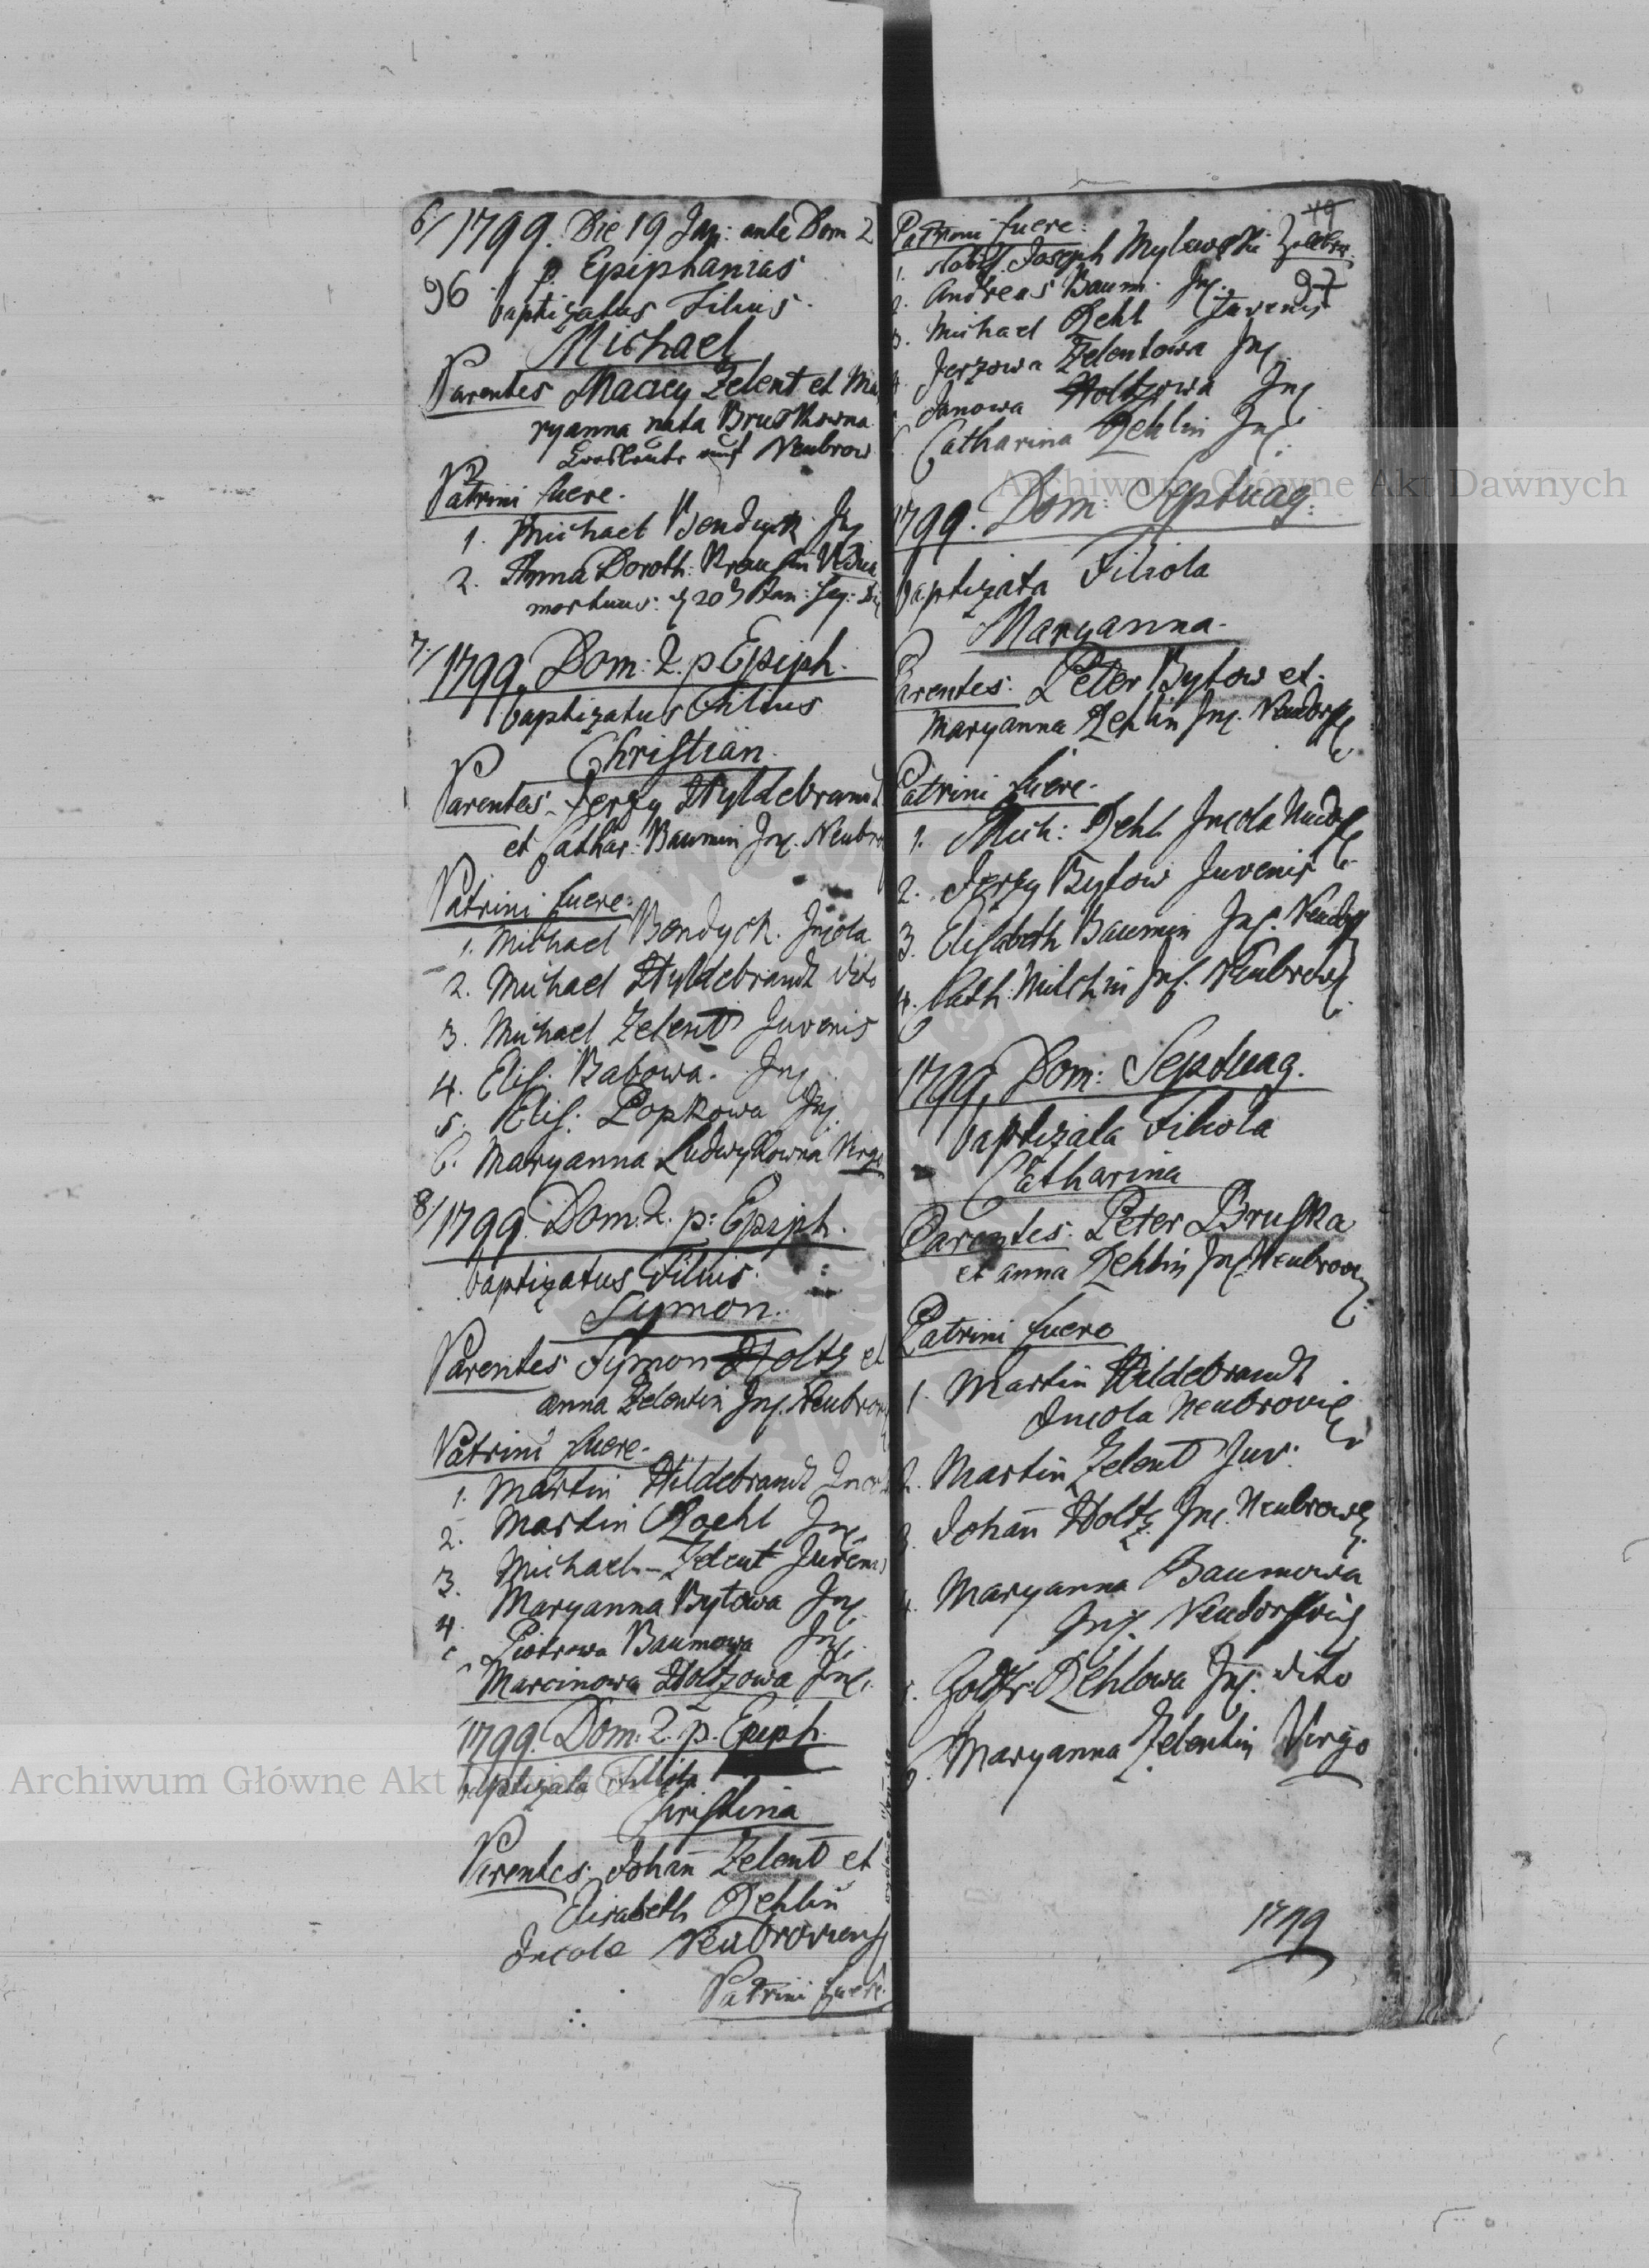 6/ 1799. Die 19 Jan: ante Dom 2
96 p. Epiphanias
baptizatus Filius.
Michael
Parentes Maciey Zelent et Ma
ryanna nata Bruskowna
Neubrow
Patrini fuere.
1. Michael Bendyck Inc
2. Anna Doroth: Krausin Vidua
mortuus:
7/ 1799 Dom: 2. p Epiph.
baptizatus Filius
Christian.
Parentes Jerzy Hyldebrandt
et Cathar: Baumin Inc. Neubro
Patrini fuere.
1. Michael Bendyck. Incola
2. Michael Hyldebrandt dito
3. Michael Zelent Juvenis
4. Elis. Babowa. Inc
5. Elis: Popkowa Inc.
6. Maryanna Ludwykowna Virgo
8/ 1799 Dom. 2. p: Epiph.
baptizatus Filius.
Symon.
Parentes Symon Holtz et
anna Zelentin Inc. Neubrow
Patrini fuere.
1. Martin Hildebrandt Incol
2. Martin Roehl Inc.
3. Michael Zelent Juvenis
4. Maryanna Bytowa Inc.
Piotrowa Baumowa Inc.
Marcinowa Holtzowa Inc.
1799. Dom: 2. p. Epiph.
baptizata Filiola
Christina
Parentes: Johan̄ Zelent et
Elisabeth Rehlin
Incolæ Neubroviens
Patrini fuere.
49
Patrini fuere:
1. Nobil. Joseph Mylewski
97
2. Andreas Baum. Inc.
3. Michael Rehl Juvenis
Jerzowa Zelentowa Inc
Janowa Holtzowa Inc
Catharina Rehlin Inc.
Archiwum Główne Akt Dawnych
1799. Dom: Septuag:
baptizata Filiola
Maryanna.
Parentes: Peter Bytow et
Maryanna Rehlin Inc. Neudorf
Patrini fuere.
1. Mich: Rehl Incola Neudorf
2. Jerzy Bytow Juvenis
3. Elisabeth Baumin Inc. Neudorf
4. Cath: Milchin Inc. Neubrow
1799 Dom: Septuag.
baptizata Filiola
Catharina
Parentes: Peter Bruska
et anna Rehlin Inc. Neubrow
Patrini fuere
1. Martin Hildebrandt
Incola Neubroviæ
2. Martin Zelent Juv.
3. Johan̄ Holtz Inc. Neubrow
4. Maryanna Baumowa
Inc. Neudorfviæ
Rehlowa Inc. dito
6. Maryanna Zelentin Virgo
1799
Archiwum Główne Akt Dawnych